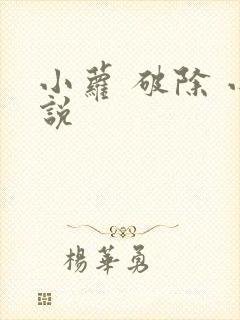 小蘿 破除 小
說
楊華勇